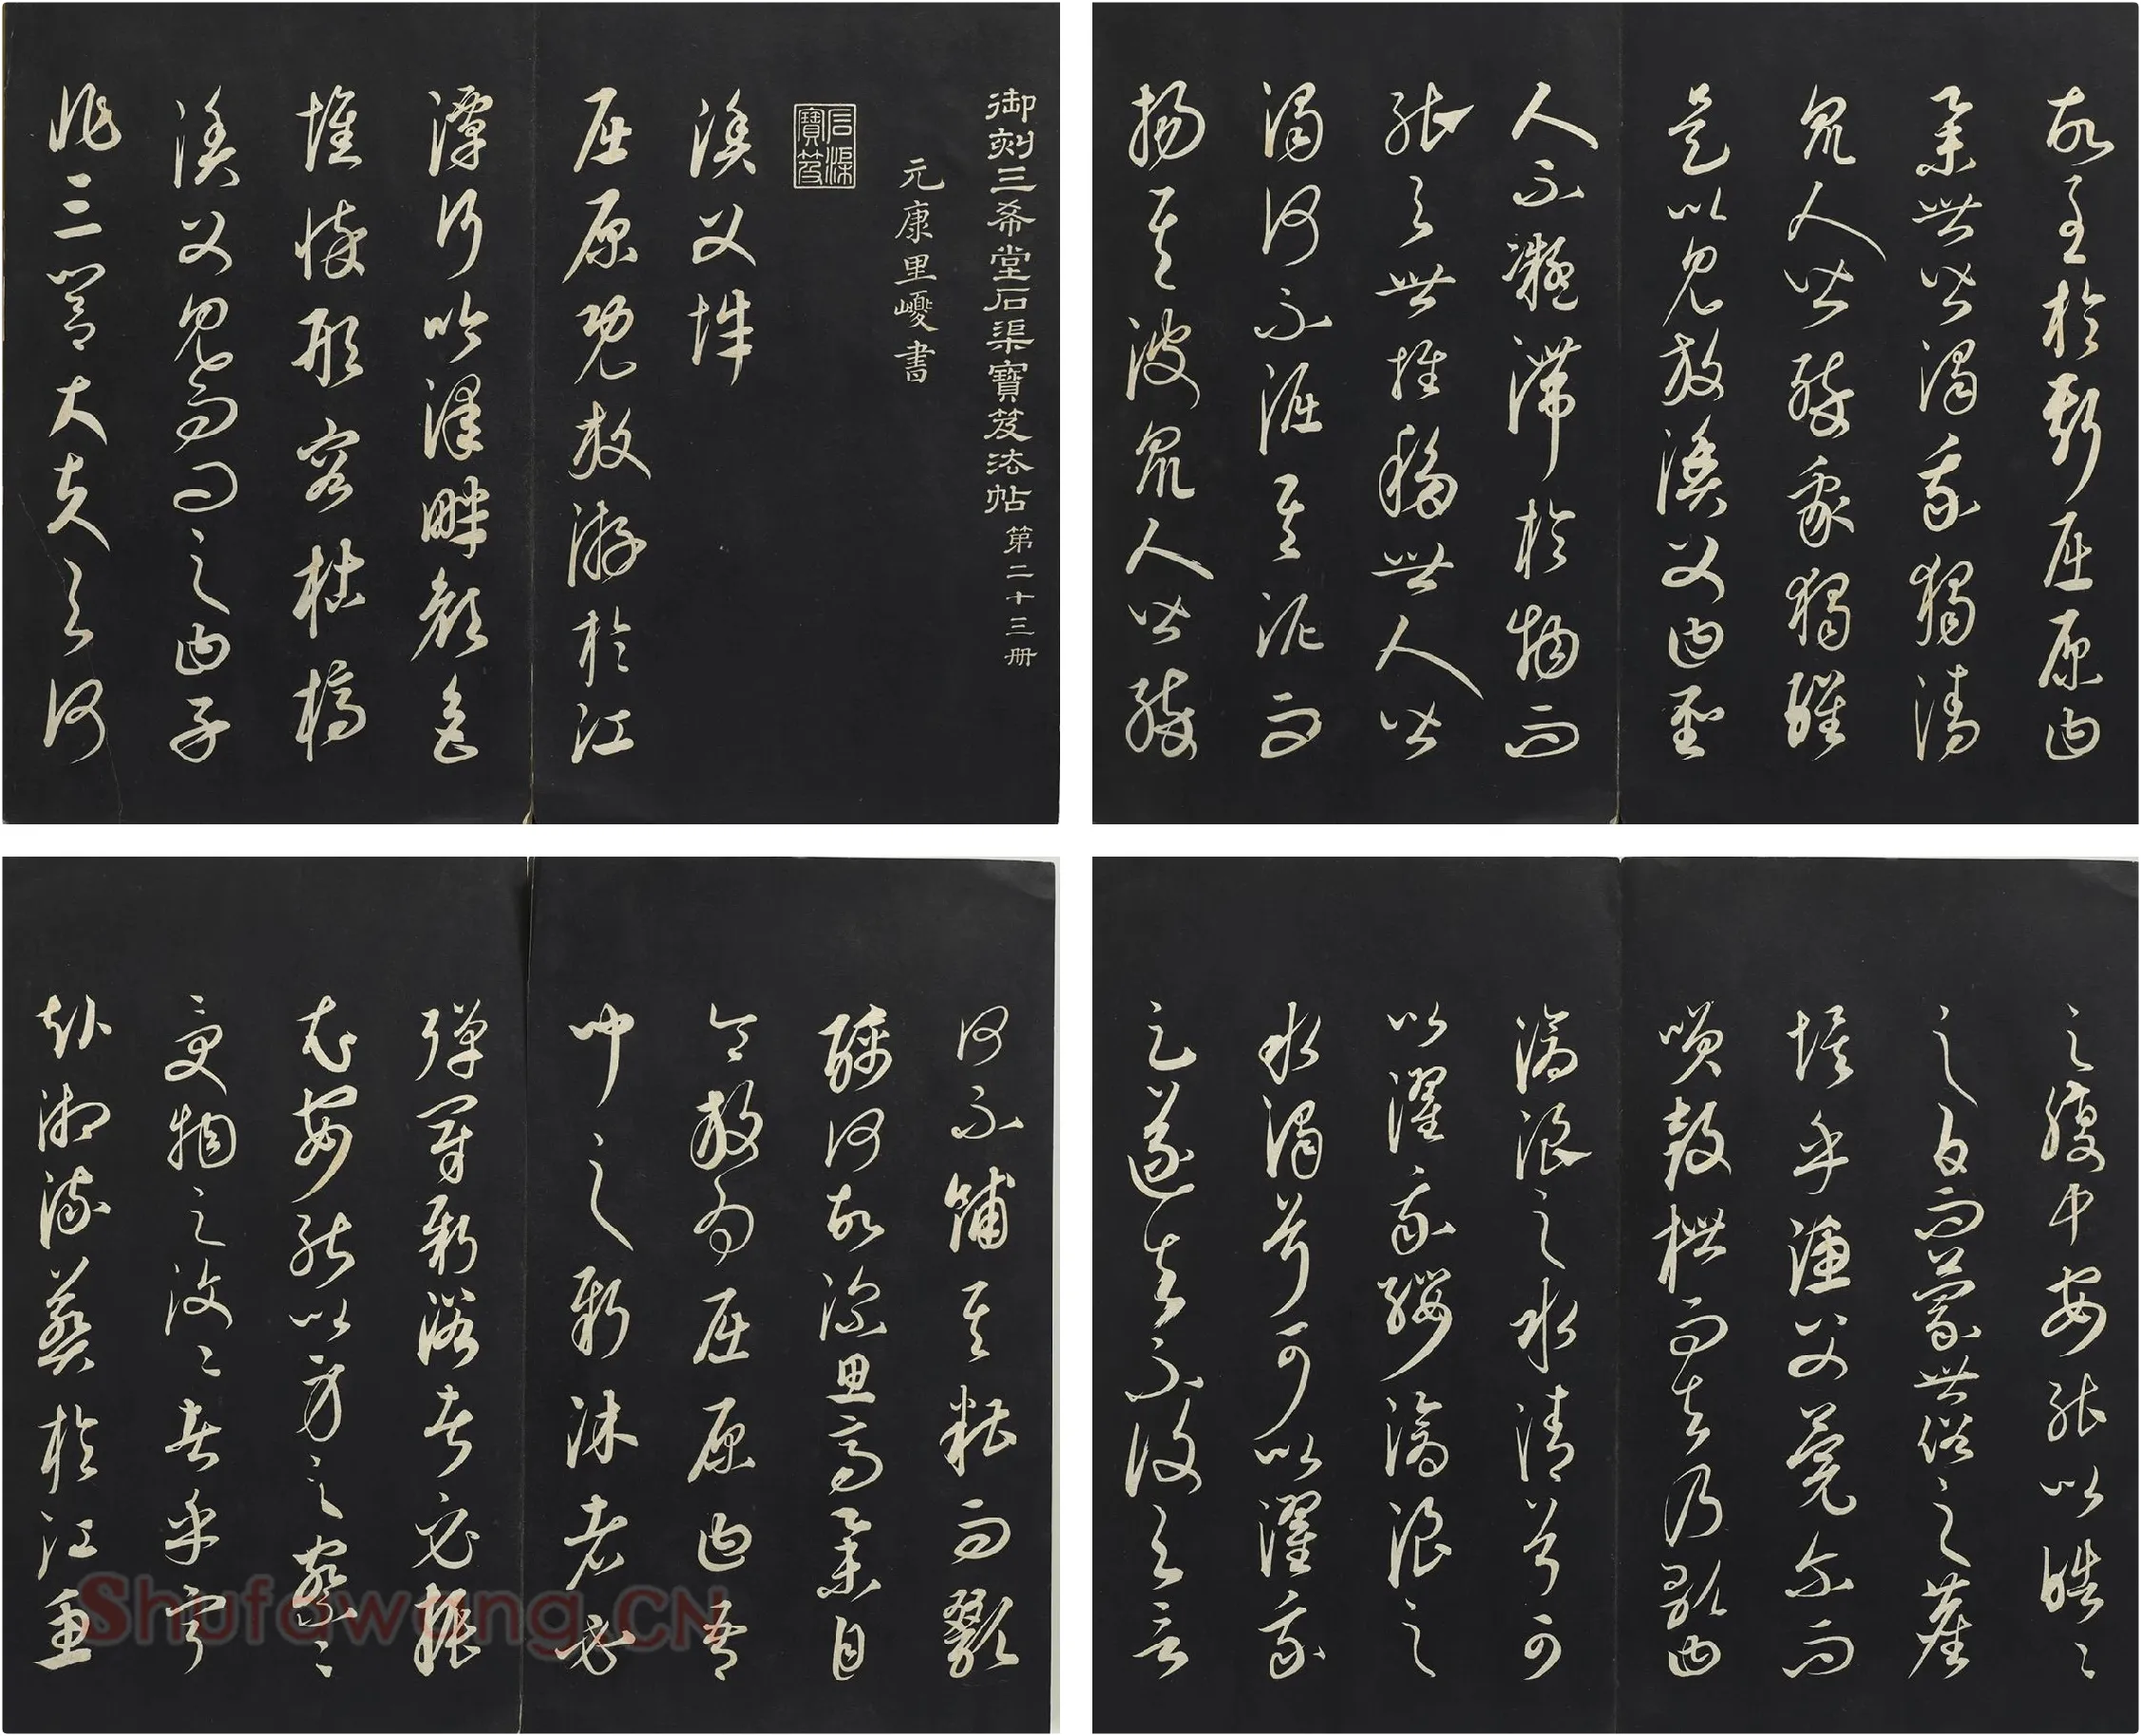 御刻三希堂石渠寶笈法帖第二十三冊
元康里巙書
石渠寶笈
漁父辭
屈原既放游於江
潭行吟澤畔顏色
憔悴形容枯槁
漁父見而問之曰子
非三閭大夫與何
故至於斯屈原曰
舉世皆濁我獨清
衆人皆醉我獨醒
是以見放漁父曰聖
人不凝滯於物而
能與世推移世人皆
濁何不淈其泥而
揚其波衆人皆醉
何不餔其糟而歠
醨何故深思高舉自
令放為屈原曰吾
聞之新沐者必
彈冠新浴者必振
衣安能以身之察〻
受物之汶〻者乎寧
赴湘流葬於江魚
之腹中安能以皓〻
之白而蒙世俗之塵
埃乎漁父莞爾而
笑鼓枻而去乃歌曰
滄浪之水清兮可
以濯我纓滄浪之
水濁兮可以濯我
足遂去不復與言
Shufawang.CN